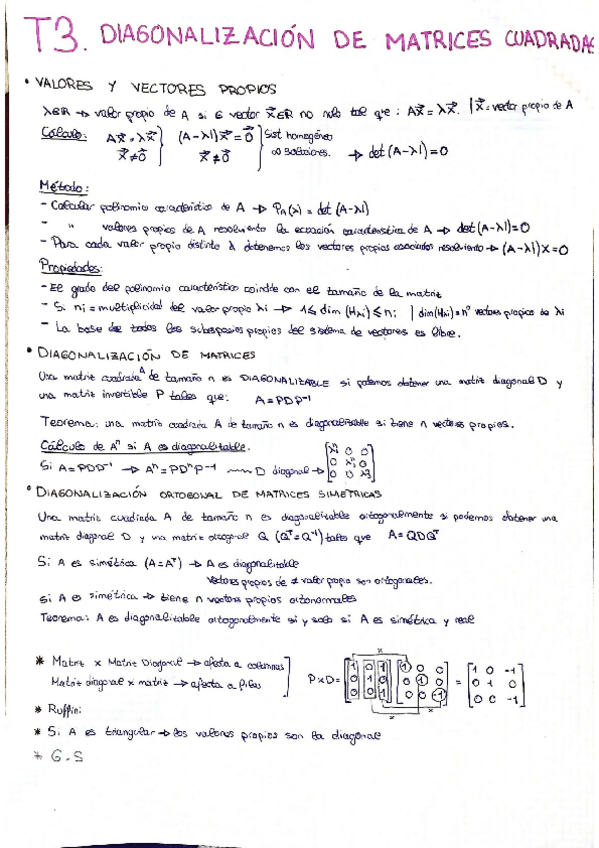 T3. DIAGONALIZACIÓN DE MATRICES CUADRADAS
• VALORES Y VECTORES PROPIOS
λ∈R → valor propio de A si ∈ vector x⃗∈R no nulo tal que: Ax⃗ = λx⃗. | x⃗ = vector propio de A
Cálculo: Ax⃗ = λx⃗ } (A-λI)x⃗ = 0⃗ } Sist homogéneo
x⃗ ≠ 0⃗ x⃗ ≠ 0⃗ ∞ soluciones. → det(A-λI) = 0
Método:
- Calcular polinomio característico de A → P_A(λ) = det(A-λI)
- " valores propios de A resolviendo la ecuación característica de A → det(A-λI)=0
- Para cada valor propio distinto λ obtenemos los vectores propios asociados resolviendo → (A-λI)X=0
Propiedades:
- El grado del polinomio característico coincide con el tamaño de la matriz
- Si ni = multiplicidad del valor propio λi → 1 ≤ dim(Hλi) ≤ ni | dim(Hλi) = nº vectores propios de λi
- La base de todos los subespacios propios del sistema de vectores es libre.
• DIAGONALIZACIÓN DE MATRICES
Una matriz cuadrada A de tamaño n es DIAGONALIZABLE si podemos obtener una matriz diagonal D y
una matriz invertible P tales que: A = PDP⁻¹
Teorema: una matriz cuadrada A de tamaño n es diagonalizable si tiene n vectores propios.
Cálculo de Aⁿ si A es diagonalizable.
Si A = PDP⁻¹ → Aⁿ = PDⁿP⁻¹ ~~ D diagonal → [λⁿ 0 0
0 λⁿ 0
0 0 λⁿ]
• DIAGONALIZACIÓN ORTOGONAL DE MATRICES SIMETRICAS
Una matriz cuadrada A de tamaño n es diagonalizable ortogonalmente si podemos obtener una
matriz diagonal D y una matriz ortogonal Q (Qᵀ=Q⁻¹) tales que A = QDQᵀ
Si A es simétrica (A=Aᵀ) → A es diagonalizable
Vectores propios de ≠ valor propio son ortogonales.
Si A es simétrica → tiene n vectores propios ortonormales
Teorema: A es diagonalizable ortogonalmente si y solo si A es simétrica y real
* Matriz x Matriz Diagonal → afecta a columnas
Matriz diagonal x matriz → afecta a filas
P x D = [1 0 1
0 1 0
0 0 1] [1 0 0
0 1 0
0 0 -1] = [1 0 -1
0 1 0
0 0 -1]
* Ruffini
* Si A es triangular → los valores propios son la diagonal
* G.S